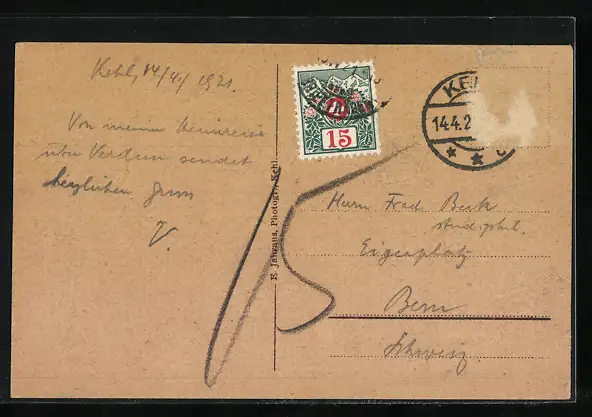 Kehl, 14/4. 1921.
Von meiner Heimreise
über Verdun sendet
herzlichen Gruss
V.
15
KE
14.4.2
E. Jahraus, Photogr., Kehl.
15
Herrn Fred Beck
stud. phil.
Eigerplatz
Bern
Schweiz